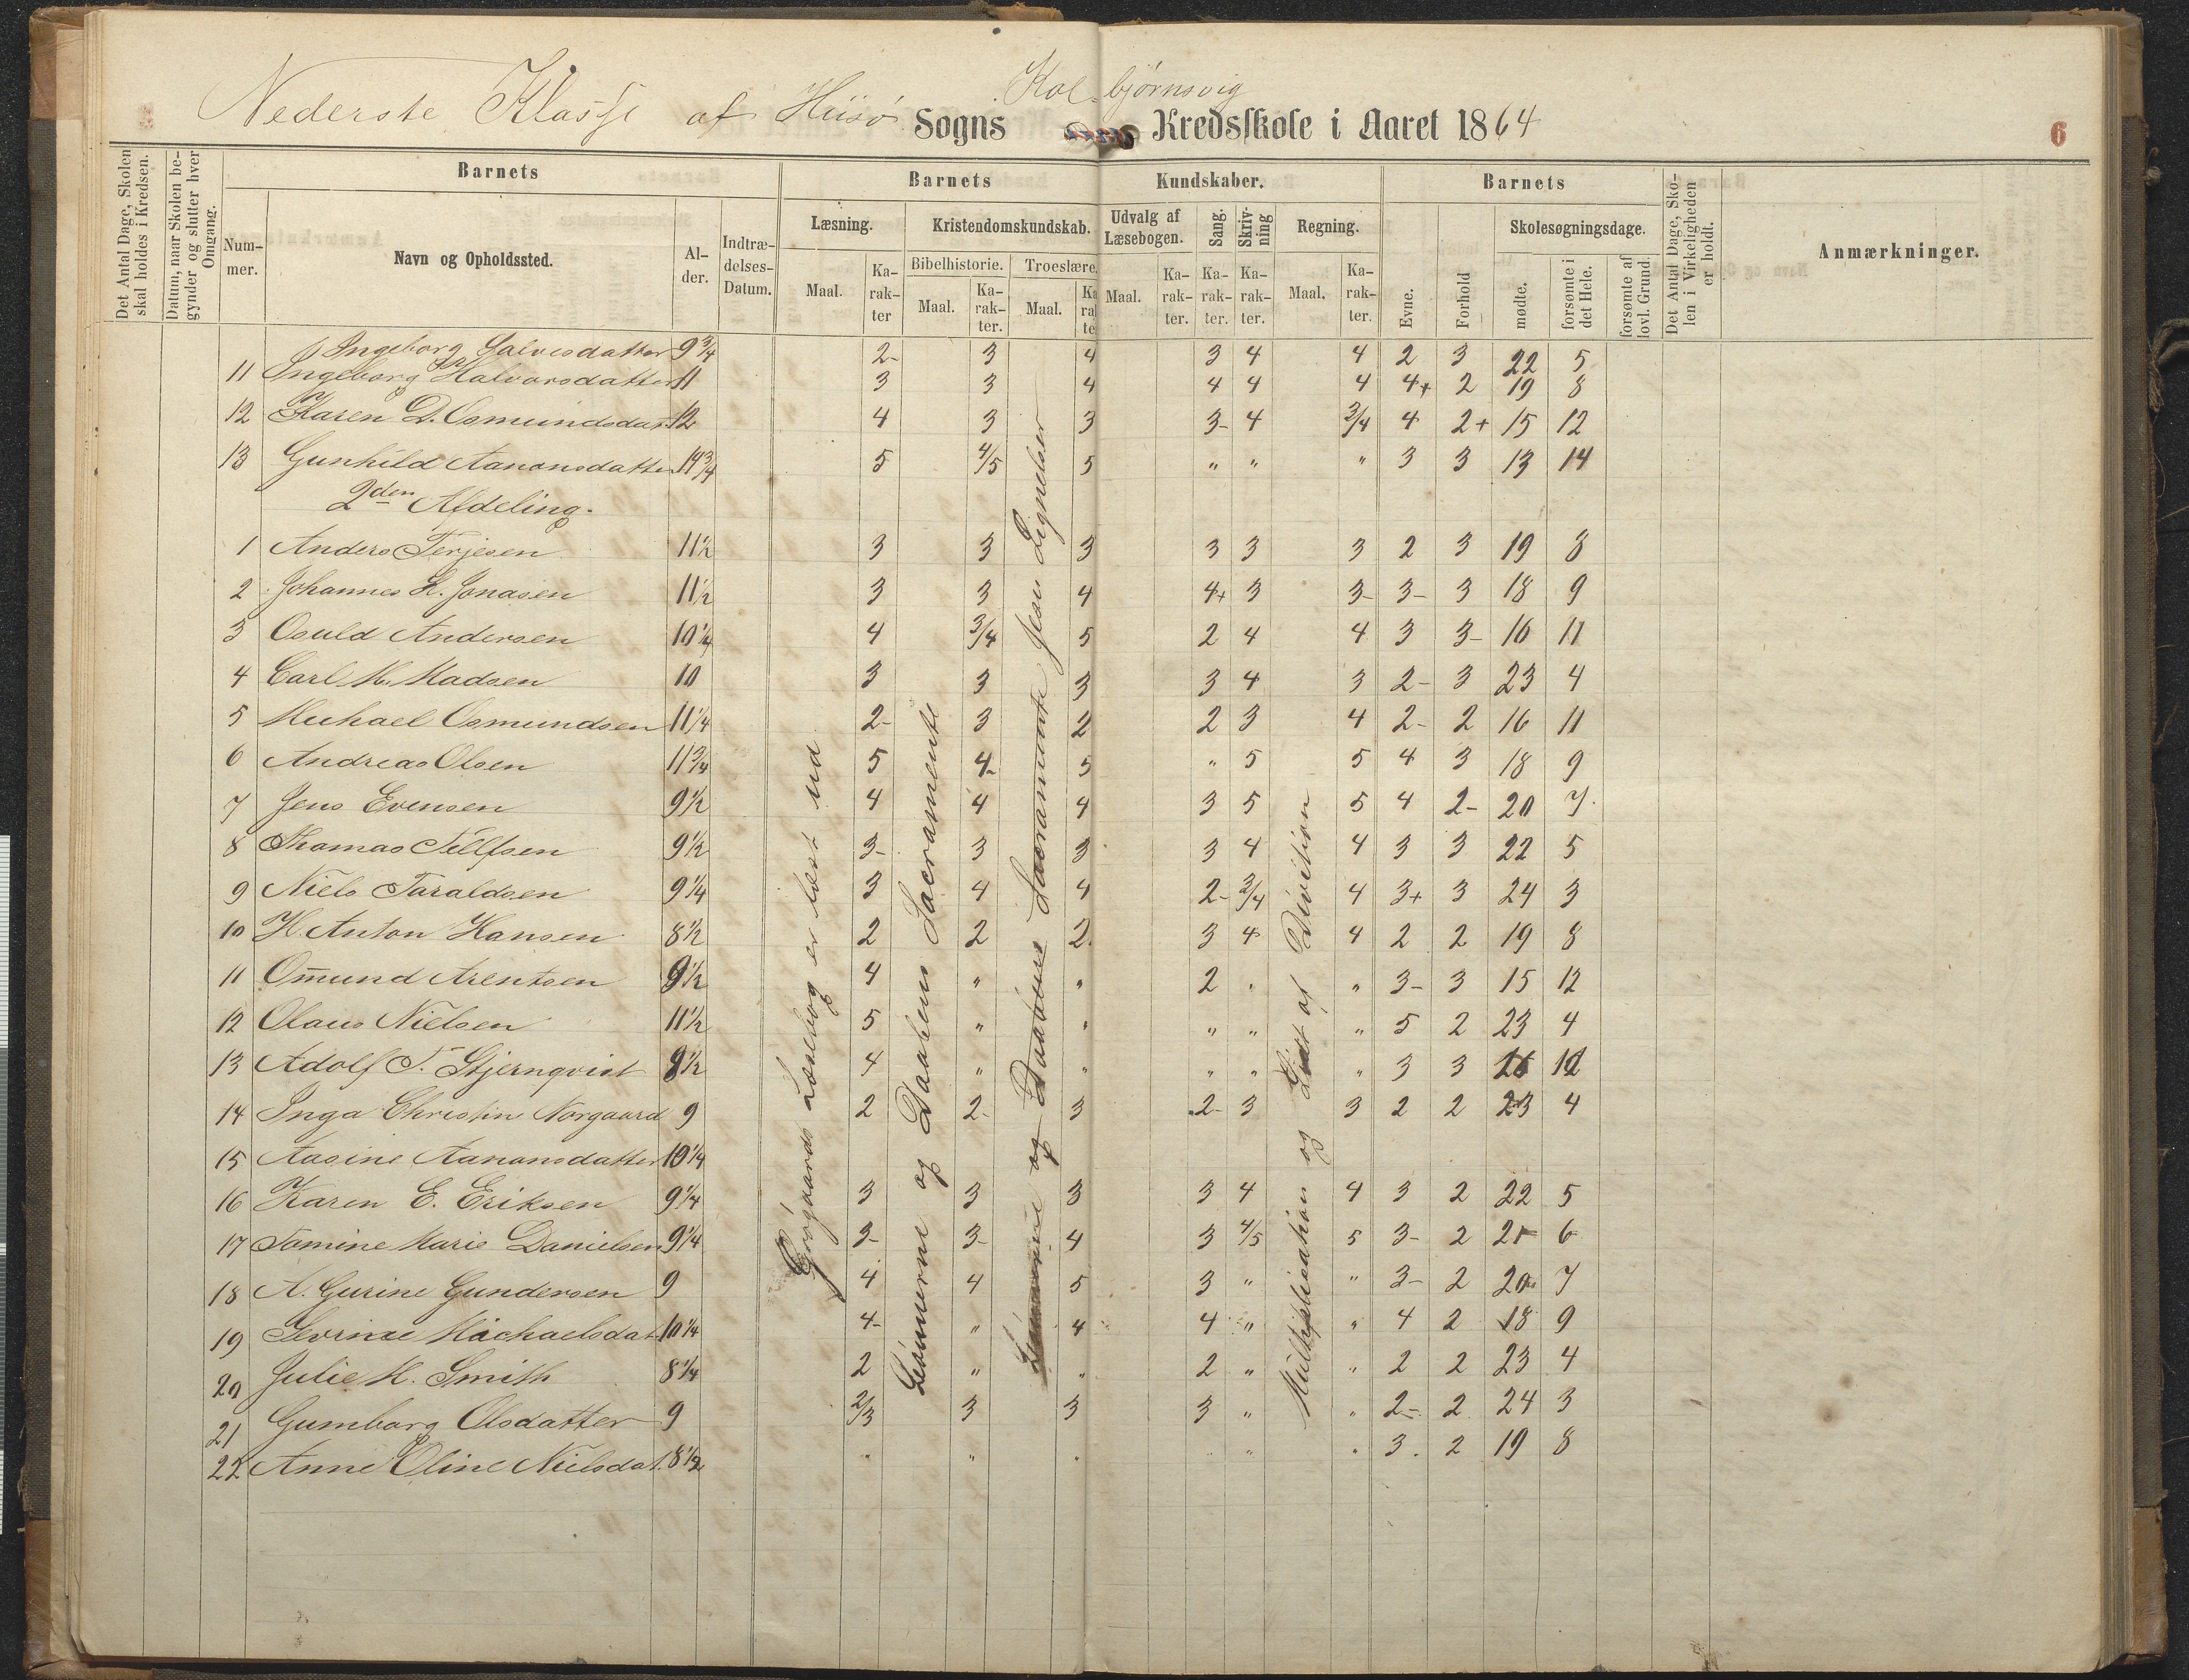 Nederste Klasse af Hisø Sogns Kolbjørnsvig Kredsskole i Aaret 1864
6
Det Antal Dage, Skolen skal holdes i Kredsen.
Datum, naar Skolen begynder og slutter hver Omgang.
Barnets
Nummer.
Navn og Opholdssted.
Alder.
Indtrædelses-Datum.
Barnets Kundskaber.
Læsning.
Maal.
Karakter
Kristendomskundskab.
Bibelhistorie.
Maal.
Karakter.
Troeslære.
Maal.
Udvalg af Læsebogen.
Maal.
Karakter.
Sang.
Karakter.
Skrivning
Karakter.
Regning.
Maal.
Karakter.
Barnets
Evne.
Forhold
Skolesøgningsdage.
mødte.
forsømte i det Hele.
forsømte af lovl. Grund.
Det Antal Dage, Skolen i Virkeligheden er holdt.
Anmærkninger.
Ingeborg Salvesdatter 9 3/4 2- 3 4 3 4 4 2 3 22 5
11 Ingeborg Halvorsdatter 11 3 3 4 4 4 4 4+ 2 19 8
12 Karen D. Osmundsdat. 12 4 3 3 3- 4 3/4 4 2+ 15 12
13 Gunhild Aanonsdatter 14 3/4 5 4/5 5 " " " 3 3 13 14
2den Afdeling.
1 Anders Terjesen 11 1/2 3 3 3 3 3 3 2 3 19 8
2 Johannes H. Jonasen 11 1/2 3 3 4 4+ 3 3- 3- 3 18 9
3 Osuld Andersen 10 1/4 4 3/4 5 2 4 4 3 3- 16 11
4 Carl M. Madsen 10 3 3 3 3 4 3 2- 3 23 4
5 Michael Osmundsen 11 1/4 2- 3 2 2 3 4 2- 2 16 11
6 Andreas Olsen 11 3/4 5 4- 5 " 5 5 4 3 18 9
7 Jens Evensen 9 1/2 4 4 4 3 5 5 4 2- 20 7
8 Thomas Tellfsen 9 1/2 3- 3 3 3 4 4 3 3 22 5
9 Niels Taraldsen 9 1/4 3 4 4 2- 3/4 4 3+ 3 24 3
10 H. Anton Hansen 8 1/2 2 2 2 3 4 4 2 2 19 8
11 Omund Arentsen 9 1/2 4 " " 2 " " 3- 3 15 12
12 Olaus Nielsen 11 1/2 5 " " " " " 5 2 23 4
13 Adolf T. Stjernqvist 8 1/2 4 " " " " " 3 3
14 Inga Christin Norgaard 9 2 2- 3 2- 3 3 2 2 23 4
15 Aasine Aanonsdatter 10 1/4
16 Karen E. Eriksen 9 1/4 3 3 3 3 4 4 3 2 22 5
17 Tomine Marie Danielsen 9 1/4 3- 3- 4 3 4/5 5 3- 2 21 6
18 A. Gurine Gundersen 9 4 4 5 3 " " 3- 2 20 7
19 Sevrine Michaelsdat 10 1/4 4- " 4 4 " " 4 2 18 9
20 Julie M. Smith 8 1/4 2 " " 2 " " 2 2 23 4
21 Gumborg Olsdatter 9 2/3 3 3 3 " " 2- 2 24 3
22 Anne Oline Nielsdat. 8 1/2 " " " " " " 3 2 19 8
Grøgaards Læsebog er læst ud
Lønnerne og Daabens Sacramente
og Daabens Sacramente Jesu Lignelser
Multiplication og Lidt af Division